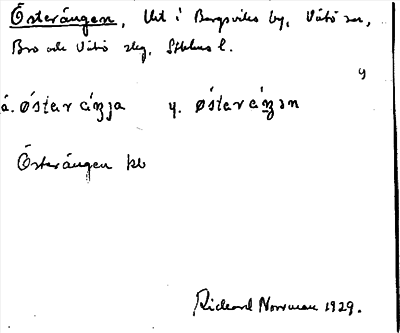 Österängen, Utt i Bergsviks by, Vätö sn,
Bro och Vätö skg, Sthlms l.
y
ä. östar áŋja y. østar áŋən
Österängen kb
Rickard Norrman 1929.